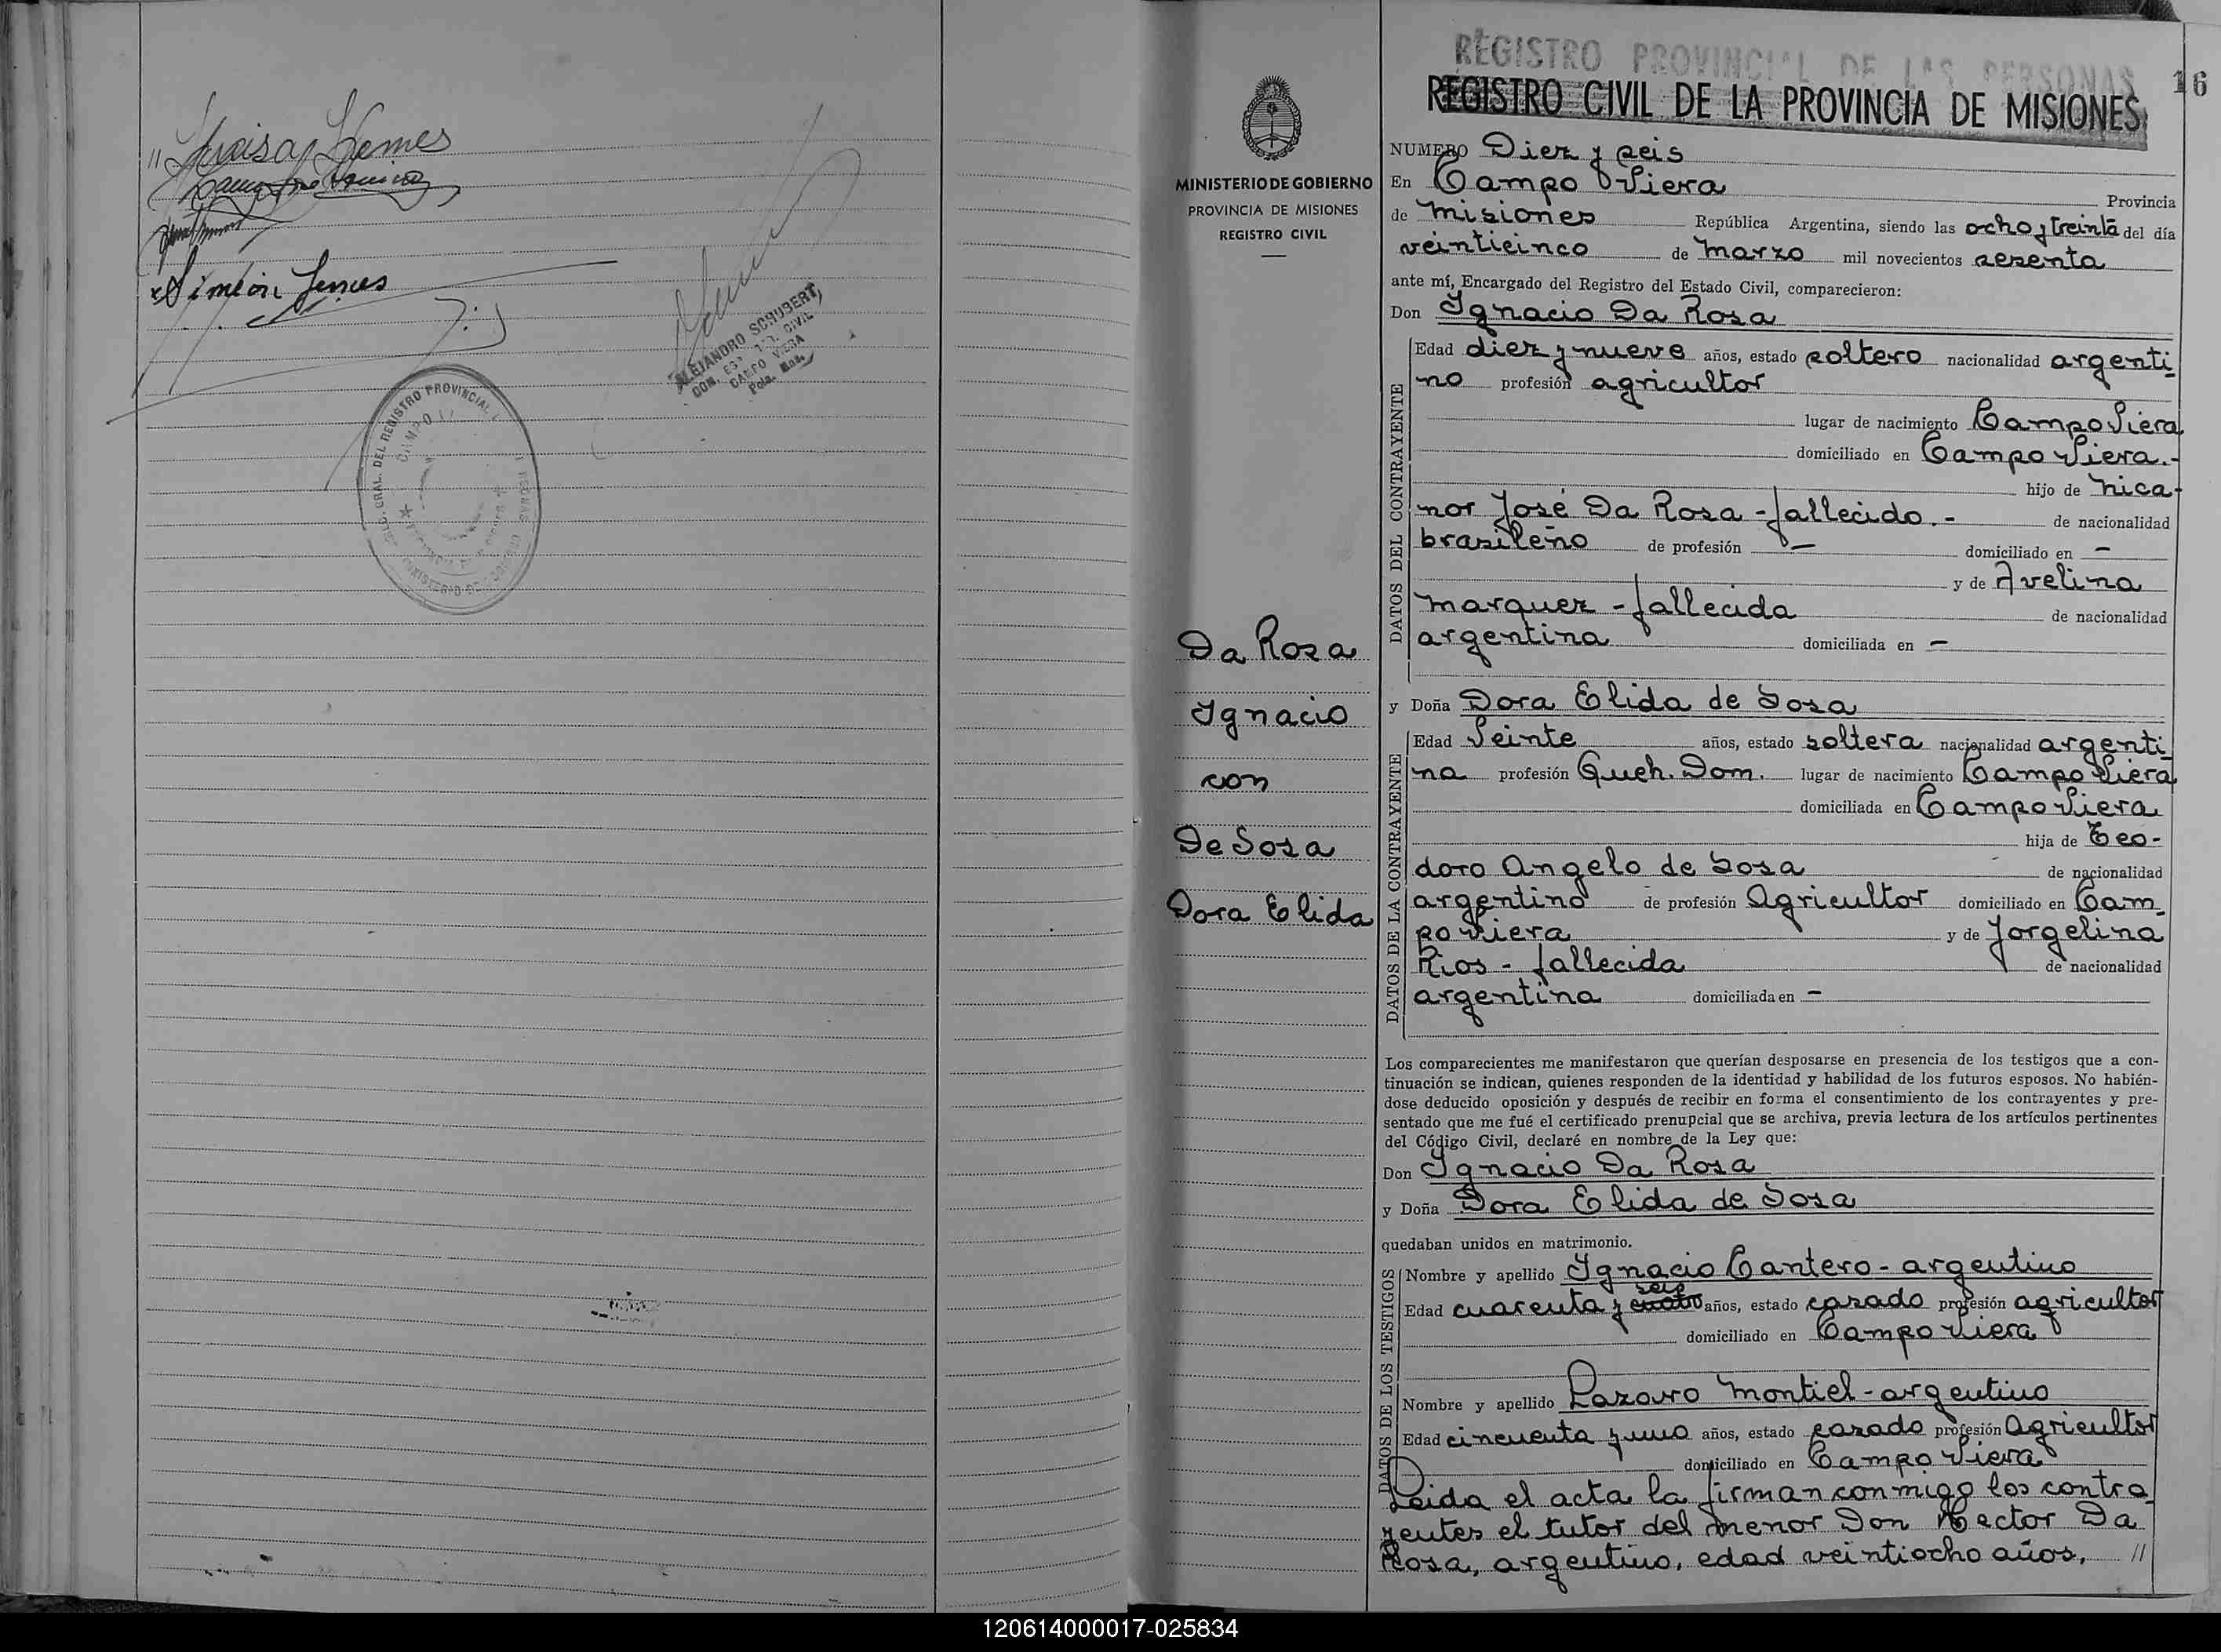 Simeón
ALEJANDRO SCHUBERT
CAMPO VIERA
DEL REGISTRO PROVINCIAL
REGISTRO PROVINCIAL DE LAS PERSONAS
16
REGISTRO CIVIL DE LA PROVINCIA DE MISIONES
MINISTERIO DE GOBIERNO
PROVINCIA DE MISIONES
REGISTRO CIVIL
Da Rosa
Ignacio
con
De Sosa
Dora Elida
NUMERO Diez y seis
En Campo Viera Provincia
de Misiones República Argentina, siendo las ocho y treinta del día
veinticinco de Marzo mil novecientos sesenta
ante mí, Encargado del Registro del Estado Civil, comparecieron:
Don Ignacio Da Rosa
DATOS DEL CONTRAYENTE
Edad diez y nueve años, estado soltero nacionalidad argenti
no profesión agricultor
lugar de nacimiento Campo Viera
domiciliado en Campo Viera.-
hijo de Nica-
nor José Da Rosa - fallecido.- de nacionalidad
brasileño de profesión — domiciliado en —
y de Avelina
Marquez - fallecida de nacionalidad
argentina domiciliada en —
y Doña Dora Elida de Sosa
DATOS DE LA CONTRAYENTE
Edad Veinte años, estado soltera nacionalidad argenti
na profesión Queh. Dom. lugar de nacimiento Campo Viera
domiciliada en Campo Viera
hija de Teo-
doro Angelo de Sosa de nacionalidad
argentino de profesión Agricultor domiciliado en Cam
po Viera y de Jorgelina
Rios - fallecida de nacionalidad
argentina domiciliada en —
Los comparecientes me manifestaron que querían desposarse en presencia de los testigos que a con-
tinuación se indican, quienes responden de la identidad y habilidad de los futuros esposos. No habién-
dose deducido oposición y después de recibir en forma el consentimiento de los contrayentes y pre-
sentado que me fué el certificado prenupcial que se archiva, previa lectura de los artículos pertinentes
del Código Civil, declaré en nombre de la Ley que:
Don Ignacio Da Rosa
y Doña Dora Elida de Sosa
quedaban unidos en matrimonio.
DATOS DE LOS TESTIGOS
Nombre y apellido Ignacio Cantero - argentino
seis
Edad cuarenta y cuatro años, estado casado profesión agricultor
domiciliado en Campo Viera
Nombre y apellido Lazaro Montiel - argentino
Edad cincuenta y uno años, estado casado profesión Agricultor
domiciliado en Campo Viera
Leida el acta la firman conmigo los contra
yentes el tutor del menor Don Hector Da
Rosa, argentino, edad veintiocho años, //
120614000017-025834